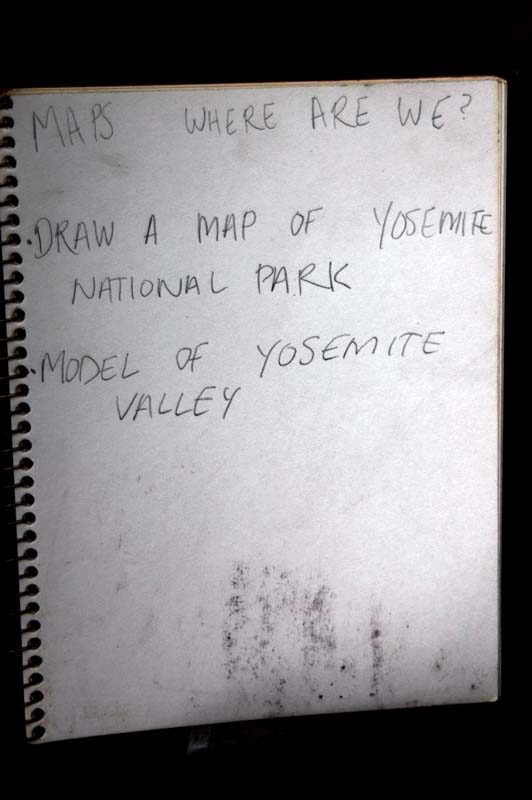 MAPS WHERE ARE WE?
·DRAW A MAP OF YOSEMITE
NATIONAL PARK
·MODEL OF YOSEMITE
VALLEY